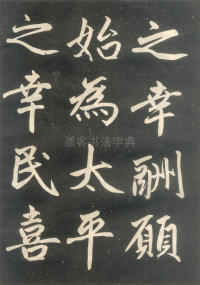 之幸酬願
始為太平
之幸民喜
墨客书法字典